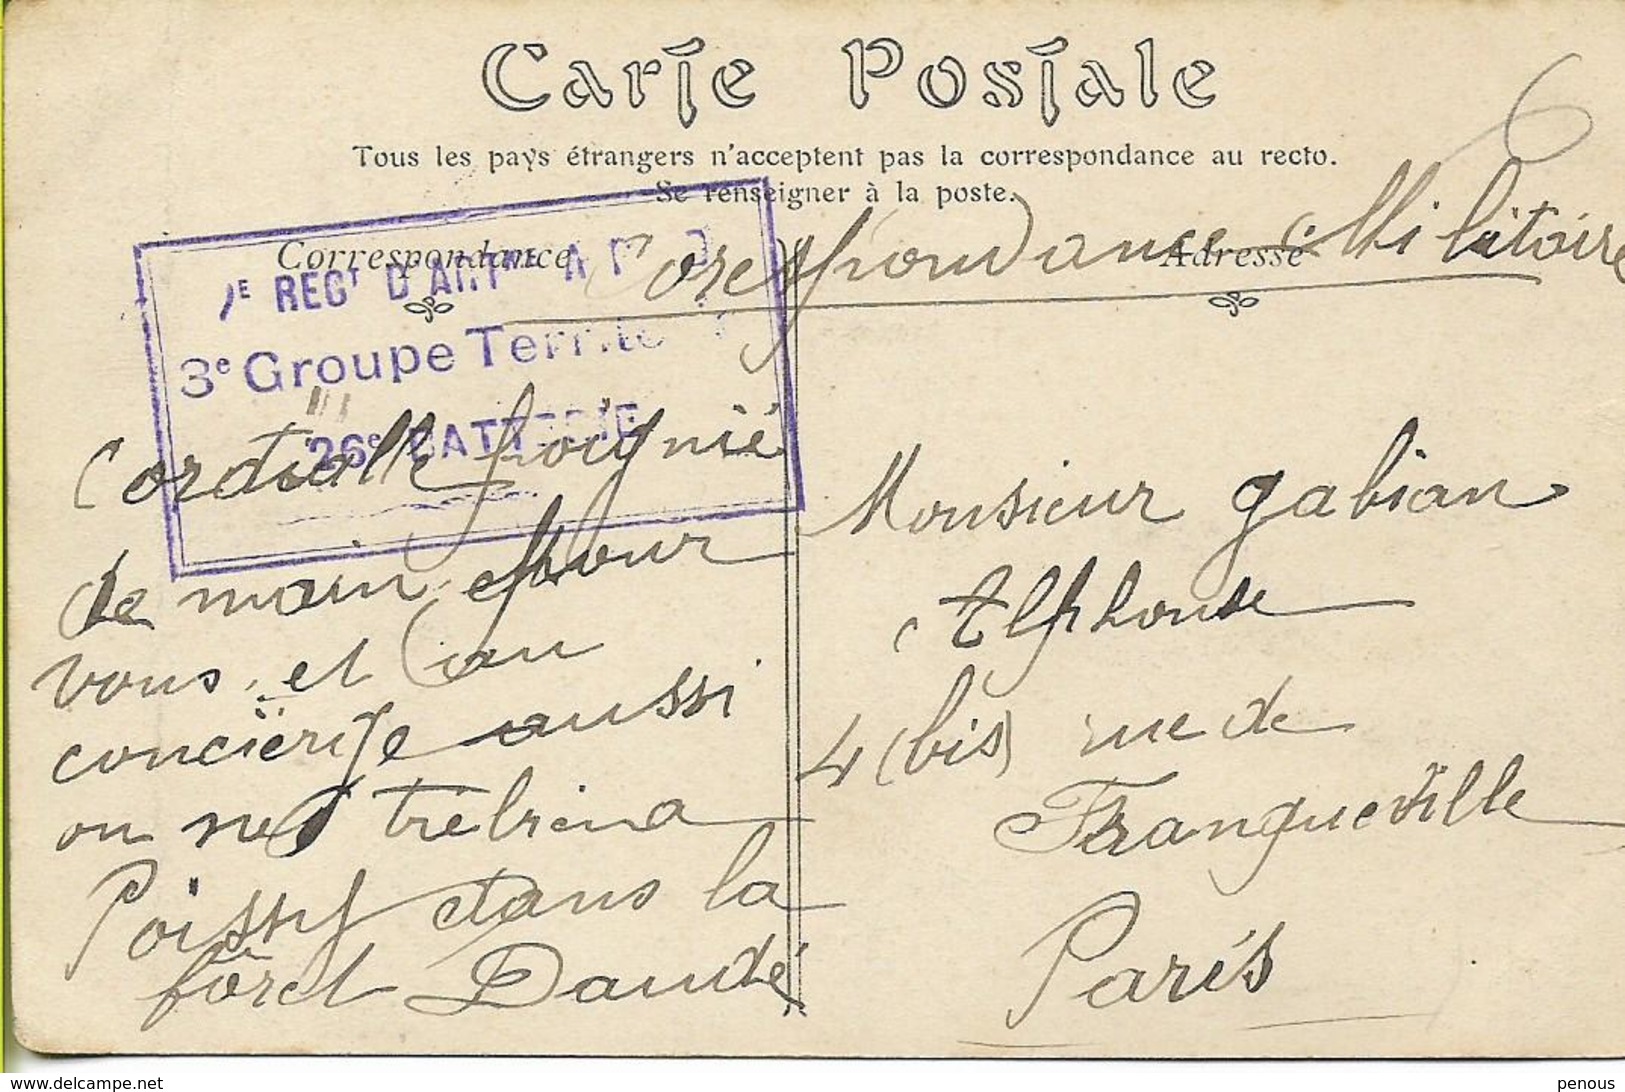 Carte Postale
Tous les pays étrangers n'acceptent pas la correspondance au recto.
Se renseigner à la poste.
Correspondance
Adresse
Corespondance Militaire
REGT D'ARTIE A
3e Groupe Territo
26e BATTERIE
Cordialle poignié
de main pour
vous et au
concierge aussi
on
Poissy dans la
fôret Daudé
Monsieur gabian
Alphonse
4 (bis) rue de
Franqueville
Paris
delcampe.net
penous